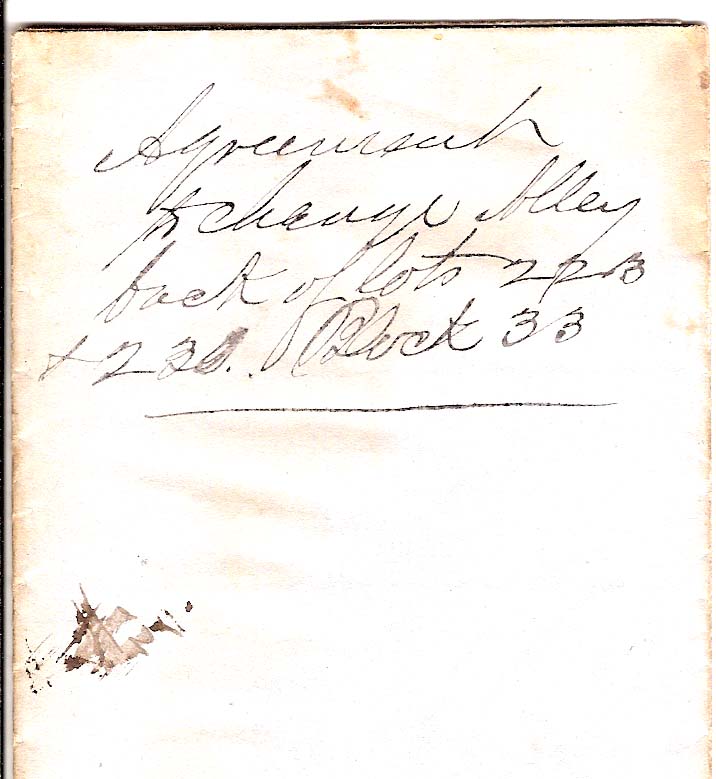 Agreement
to change Alley
back of lots 22B
& 23B. Block 33